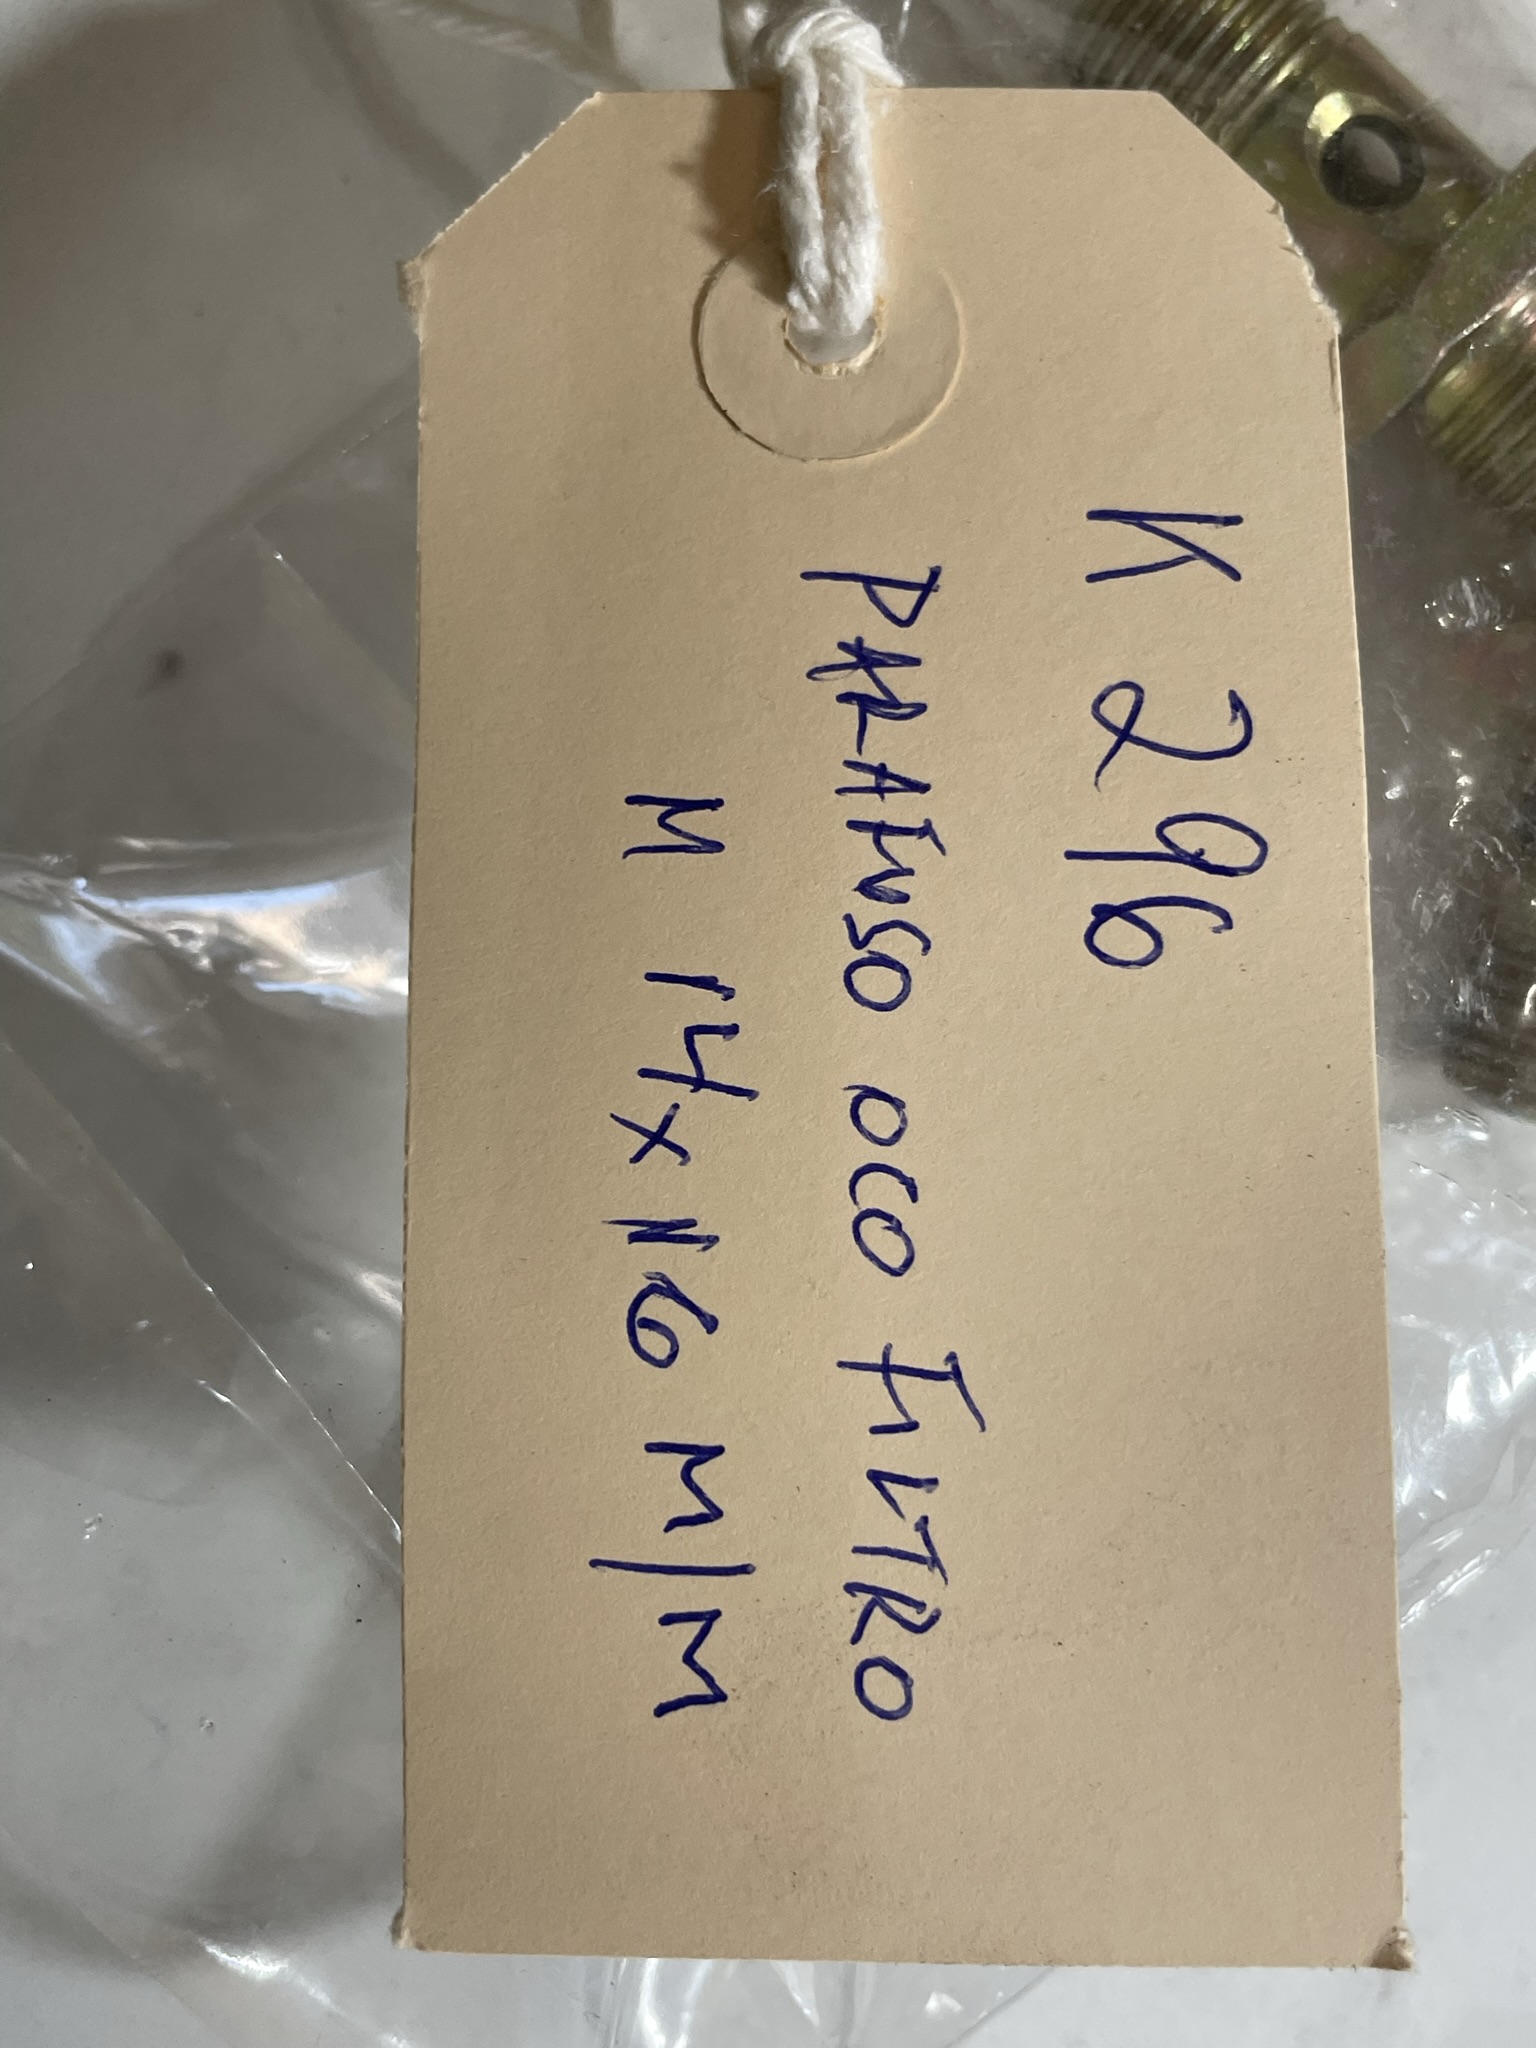 K 296
PARAFUSO OCO FILTRO
M 14x N6 M/M